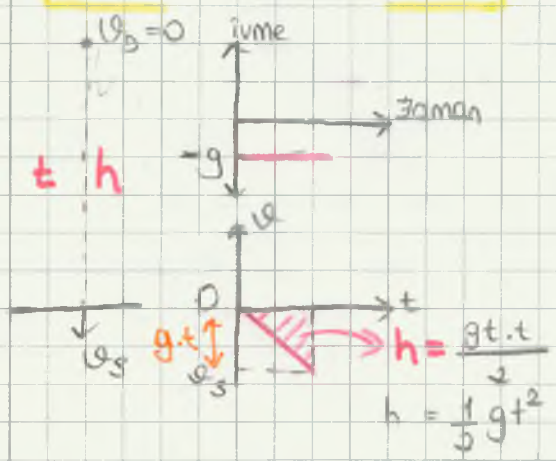 ϑ₀ = 0
ivme
zaman
-g
t h
ϑ
0
t
g.t
ϑs
ϑs
h = gt.t / 2
h = 1/2 gt²